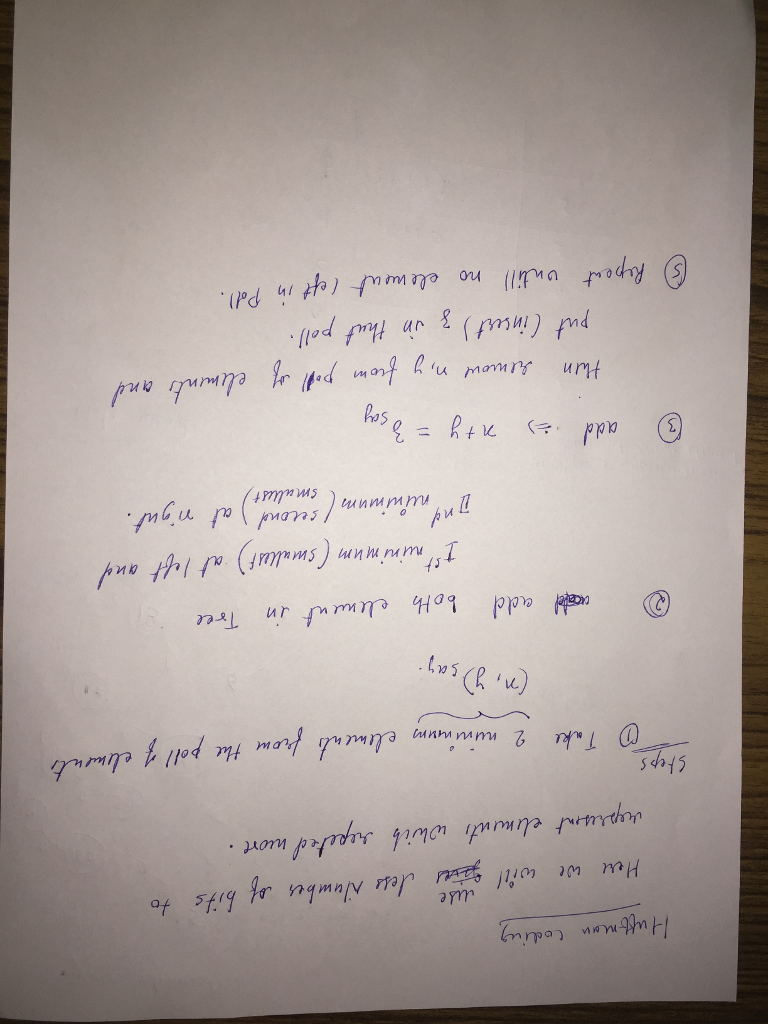 Huffman coding
Here we will use less Number of bits to
represent elements which repeted more.
Steps
① Take 2 minimum elements from the poll of elements
(x, y) say.
② add both element in Tree
Ist minimum (smallest) at left and
IInd minimum (second smallest) at right.
③ add ⇒ x+y = z say
then remove x, y from poll of elements and
put (insert) z in that poll.
⑤ Repeat untill no element left in Poll.